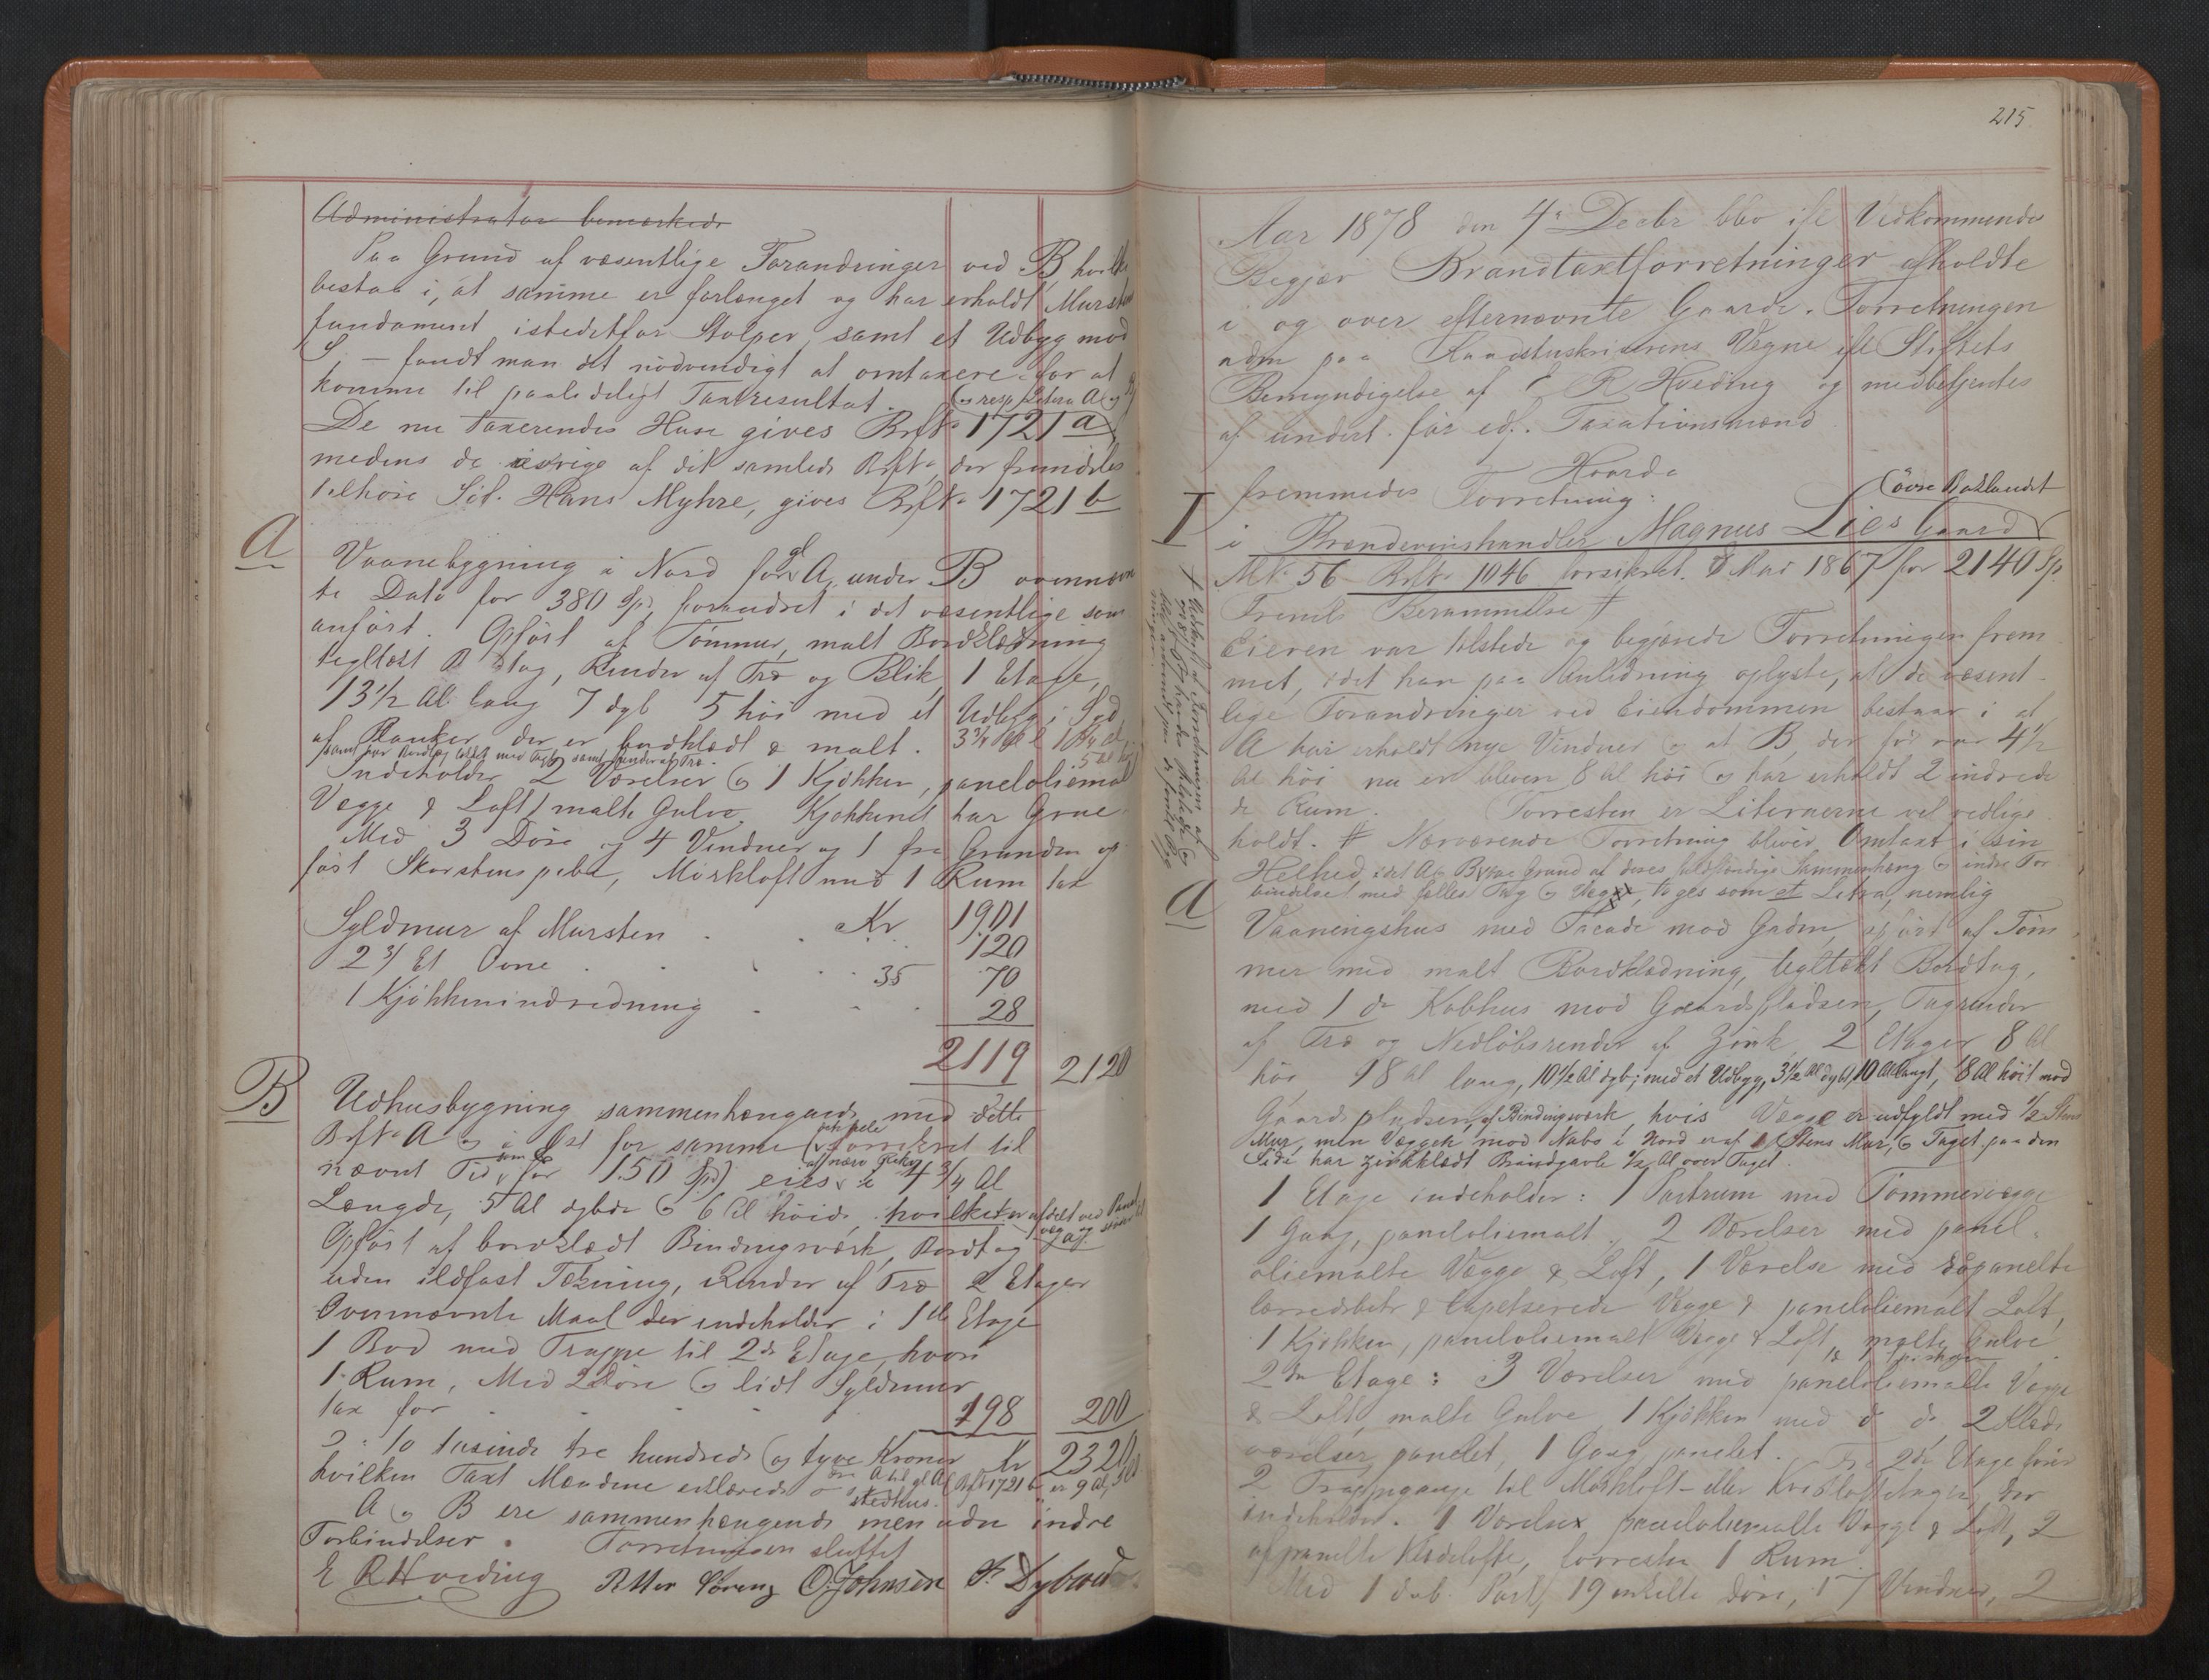 Administrator bemærkede
Paa Grund af væsentlige Forandringer ved B, hvilke
bestaa i, at samme er forlænget og har erholdt Mursten
fundament istedetfor Stolper, samt et Udbyg mod
S. – fandt man det nödvendigt at omtaxere for at
komme til paalideligt Taxtresultat. (og resp Litera A og
De nu taxerendes Huse gives Brft No 1721 a
medens de øvrige af det samlede Brft No, der fremdeles
tilhöre Hans Myhre, gives Brft No 1721 b
A
Vaanebygning i Nord for gl A, under B ovennævn
te Dato for 380 Spd, forandret i det væsentlige som
anfört. Opfört af Tömmer, malt Bordklædning
tegltækt Bdtag, Render af Træ og Blik, 1 Etage,
13 1/2 Al lang 7 dyb 5 höi med et Udbyg i Syd
af Planker, der er bordklædt & malt. 3 3/4 Al
samt har Bordtag tækket med Tegl samt Render af Træ.
Indeholder 2 Værelser og 1 Kjökken, paneloliemal
Vægge & Loft, malte Gulve. Kjökkenet har Grue
Med 3 Döre og 4 Vinduer og 1 fra Grunden op
fört Skorstenspibe, Mörkloft med 1 Rum tax
Kr 1901
Syldmur af Mursten . . . . 120
2 3/ Et Ovne . . . . 35 70
1 Kjökkenindredning . . . 28
2119 2120
B
Udhusbygning sammenhængende med dette
Brft No A og i Öst for samme forsikret til
nævnt Tid som for 150 Spd) eies i 4 3/4 Al
Længde, 5 Al dybde og 6 Al höide, hvilket er afdelt ved
Opfört af bordklædt Bindingsværk, Bordtag
uden ildfast Tækning, Render af Træ 2 Etager
Ovennævnte Maal der indeholder i 1ste Etage
1 Bod med Trappe til 2de Etage, hvori
1 Rum, Med 2 Döre og lidt Syldmur
tax for . . . . 198 200
= To tusinde tre hundrede og tyve Kroner Kr 2320
hvilken Taxt Mændene erklærede
A og B ere sammenhængende men uden indre
Forbindelser. Forretningen sluttet
E R Hveding Petter Lorenz O. Johnsen F. Dybwad
215.
Aar 1878 den 4de Decbr blev ifl Vedkommendes
Begjær Brandtaxtforretninger afholdte
i og over efternævnte Gaarde. Forretningen
adm paa Raadstuskriverens Vegne ifl Stiftets
Bemyndigelse af E R Hveding og medbetjentes
af undert. för edf. Taxationsmænd
Hvorda
fremmedes Forretning:
(övre Baklandet
I
i Brændevinshandler Magnus Lies Gaard
Mt. 56 Brft No 1046 forsikret 8 Mai 1867 for 2140 Sp
Freml Berammelse #
Eieren var tilstede og begjærede Forretningen frem
met, idet han paa Anledning oplyste, at de væsent
lige Forandringer ved Eiendommen bestaar i at
A har erholdt nye Vinduer og at B, der för var 4 1/2
Al höi nu er bleven 8 Al höi og har erholdt 2 indrede
de Rum. Forresten er Literaerne vel vedlige
holdt. # Nærværende Forretning bliver Omtaxt i sin
Helhed, idet A og B paa Grund af deres fuldstændige Sammenhæng og indre For
bindelse med fælles Tag og Vægge, tages som et Litra, nemlig
A
Vaaningshus med Facade mod Gaden, opfört af Töm
mer med malt Bordklædning, tegltækt Bordtag,
med 1 do Kobhus mod Gaardspladsen, Tagrender
af Træ og Nedlöbsrender af Zink, 2 Etager 8 Al
höi 18 Al lang, 10 1/2 Al dyb; med et Udbyg, 3 1/2 Al dybt, 10 Al langt, 8 Al höit mod
Gaardspladsen, af Bindingsværk, hvis Vægge er udfyldt med 1/2 Stens
Mur, men Væggen mod Nabo i Nord er af 1 Stens Mur, og Taget paa den
Side har zinkklædt Brandgavl 1/2 Al over Taget.
1 Etage indeholder: 1 Portrum med Tömmervægge
1 Gang, paneloliemalt, 2 Værelser med panel
oliemalte Vægge & Loft, 1 Værelse med
lærredsbetr & tapetserede Vægge & paneloliemalt Loft,
1 Kjökken, paneloliemalt Vægge & Loft, malte Gulve
2den Etage: 3 Værelser med paneloliemalte Vægge
& Loft, malte Gulve 1 Kjökken med do do, 2 Klæde
værelser panelet, 1 Gang panelet. Fra 2den Etage förer
2 Trapegange til Mörkloft- eller Kvistloftetagen, der
indeholder. 1 Værelse paneloliemalte Vægge & Loft, 2
afpanelte Klædelofte, forresten 1 Rum.
Med 1 dob. Port, 19 enkelte döre, 17 Vinduer, 2